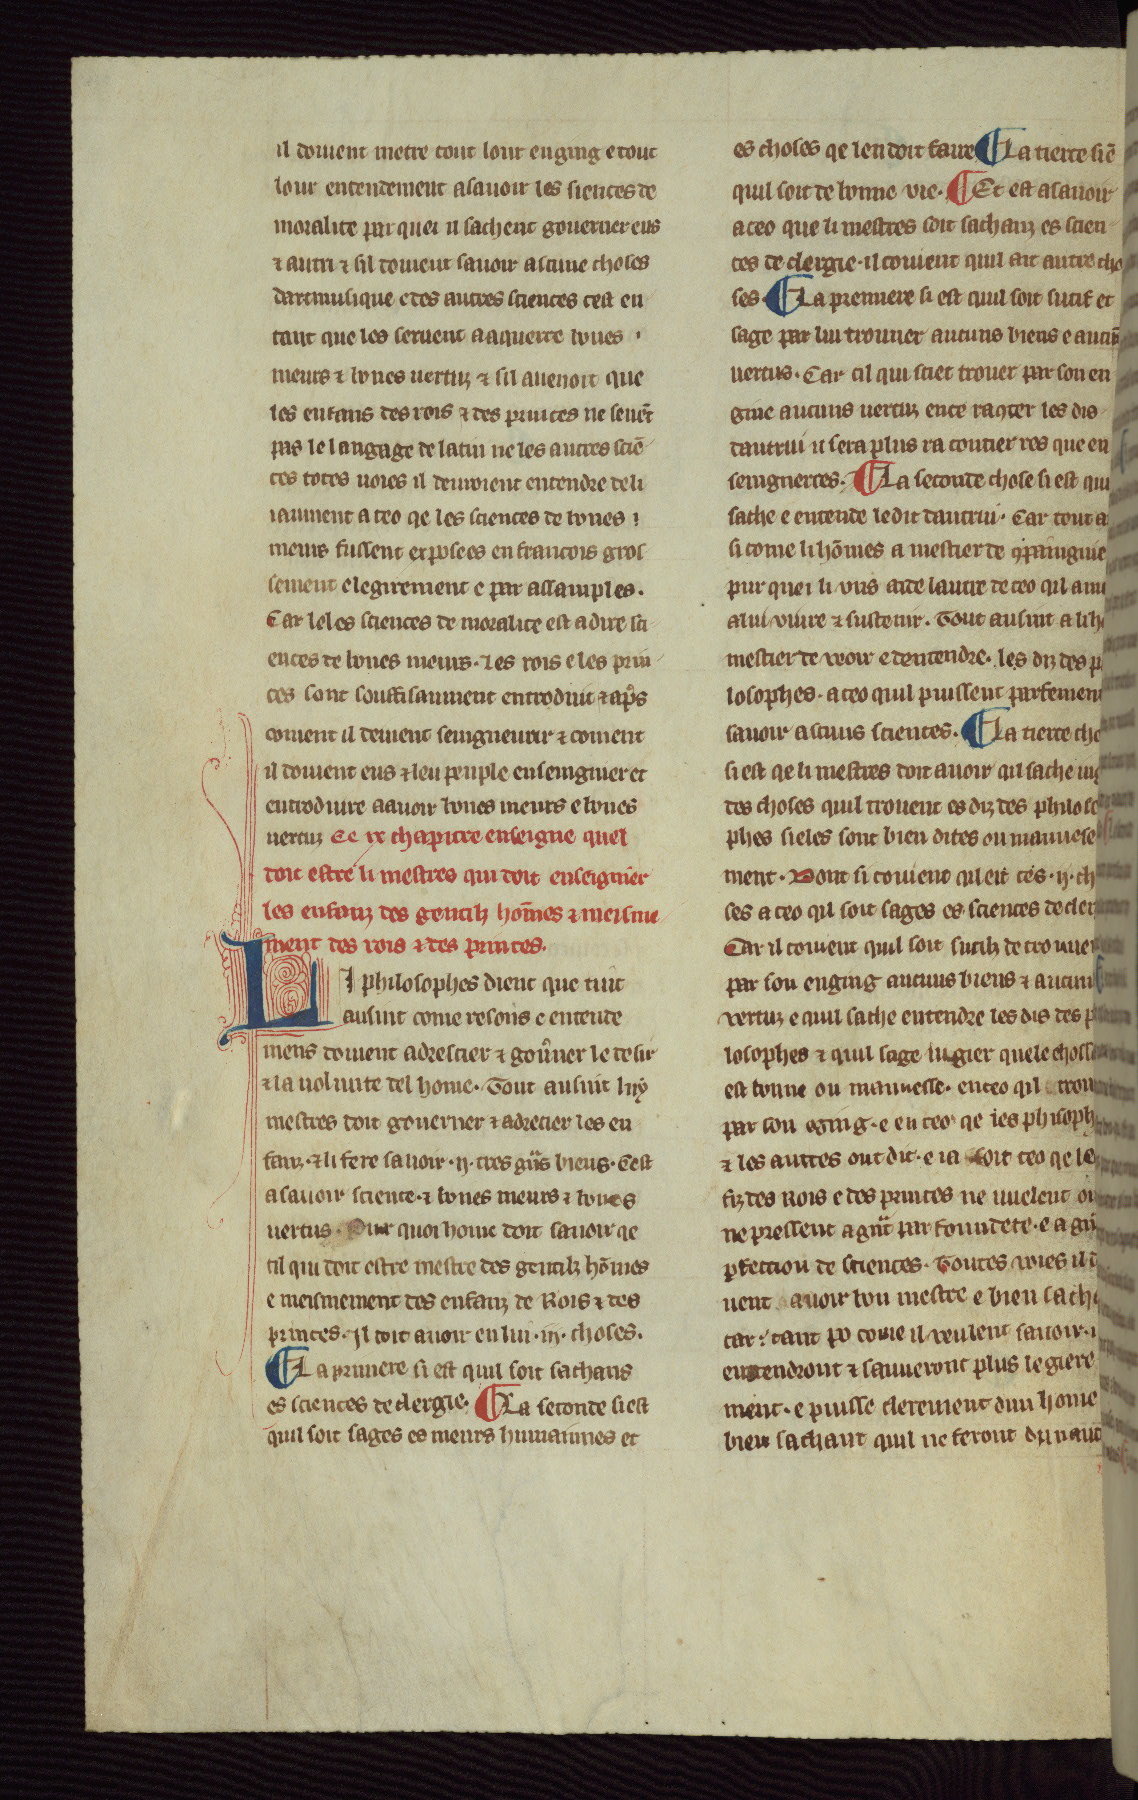 il doiuent metre tout lour enging e tout
lour entendement a sauoir les siences de
moralite par quei il sachent gouerner eus
⁊ autri ⁊ sil doiuent sauoir ascune choses
dart musique e des autres sciences cest en
tant que les seruent a aquerre bones
meurs ⁊ bones uertuz ⁊ sil auenoit que
les enfans des rois ⁊ des princes ne seuēt
pas le langage de latin ne les autres sciē
ces totes uoies il deuroient entendre deli
iaument a ceo qe les sciences de bones
meurs fussent exposees en francois gros
sement e legirement e par assamples.
Car leles sciences de moralite est a dire sci
ences de bones meurs. ⁊ es rois e les prin
ces sont souffisaument entroduit ⁊ apͬs
coment il deiuent seingneurir ⁊ coment
il doiuent eus ⁊ leu peuple enseingnier et
entroduire a auoir bones meurs e bones
uertuz Ce ix chapitre enseigne quel
doit estre li mestres qui doit enseignier
les enfanz des gentilz hōmes ⁊ meisme
ment des rois ⁊ des princes.
LI philosophes dient que tuit
ausint come resons e entende
mens doiuent adrescier ⁊ gou̾ner le desir
⁊ la uolunte del home. Tout ausint luy
mestres doit gouerner ⁊ adrecier les en
fanz. ⁊ li fere sauoir .ij. tres gͣns biens. Cest
asauoir science. ⁊ bones meurs ⁊ bones
uertus. Pur quoi home doit sauoir qe
cil qui doit estre mestre des gentilz hōmes
e meismement des enfanz de Rois ⁊ des
princes. Il doit auoir en lui .iij. choses.
¶ La primere si est quil soit sachans
es sciences de clergie. ¶ La seconde si est
quil soit sages es meurs humaines et
es choses qe len doit faire ¶ La tierce si ē
quil soit de bonne vie. ¶ Et est asauoir
a ceo que li mestres soit sachanz es scien
ces de clergie. il couient quil ait autre cho
ses. ¶ La premiere si est quil soit sutif et
sage par lui trouuer aucuns biens e aucūs
uertus. Car cil qui sciet trouer par son en
gine aucuns uertuz ence raqter les dis
dautrui il sera plus ra contier res que en
seingnerres. ¶ La seconde chose si est qui
sache e entende le dit dautrui. Car tout a
si come li hōmes a mestier de ꝯpaingnie
pur quei li vns aide lautre de ceo qil a
a lui viure ⁊ sustenir. Tout ausint a li
mestier de veoir e dentendre. les diz des p
losophes. a ceo quil puissent parfement
sauoir ascuns sciences. ¶ La tierce cho
si est qe li mestres doit auoir qil sache iug
des choses quil trouent es diz des philoso
phes si eles sont bien dites ou mauuese
ment. Dont si couient qil eit ces .ij. ch
ses a ceo qil soit sages es sciences de cler
Car il couient quil soit sutilz de trouuer
par son enging aucuns biens ⁊ aucun
vertuz e quil sache entendre les dis des p
losophes ⁊ quil sage iugier quele chosse
est bonne ou mauuesse. en ceo qil trou
par son eging. e en ceo qe les philosoph
⁊ les autres ont dit. e ia soit ceo qe le
fiz des Rois e des princes ne uuelent ou
ne pressent a gͣnt parfoundete. e a gͣn
ꝑfection de sciences. Toutes voies il d
uent auoir bon mestre e bien sach
car. tant po come il veulent sauoir.
entendront ⁊ sauueront plus legiere
ment. e puisse clerement dun home
bien sachant quil ne feront dun aut